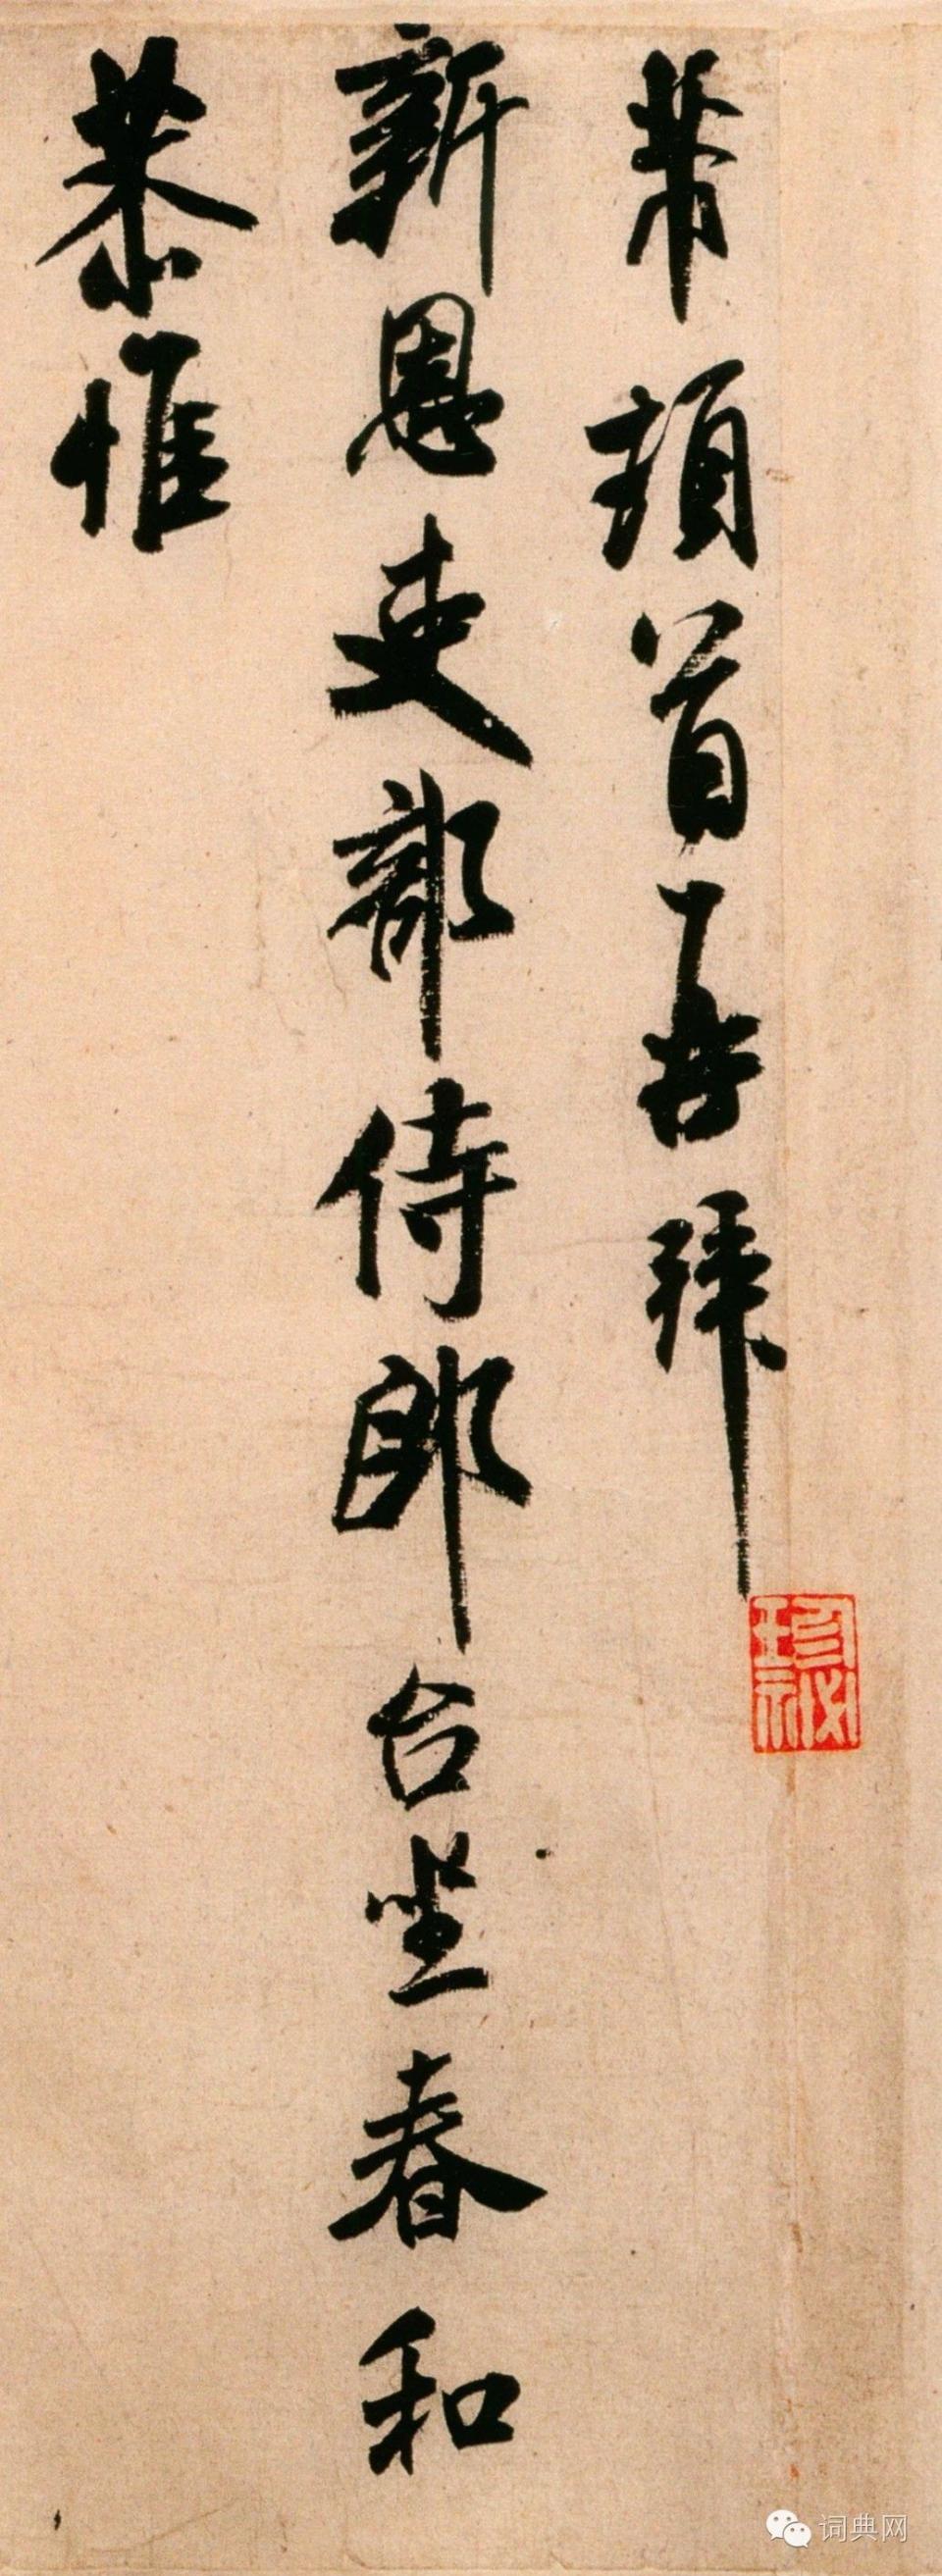 芾頓首再拜
新恩吏部侍郎台坐春和
恭惟
珍秘
词典网